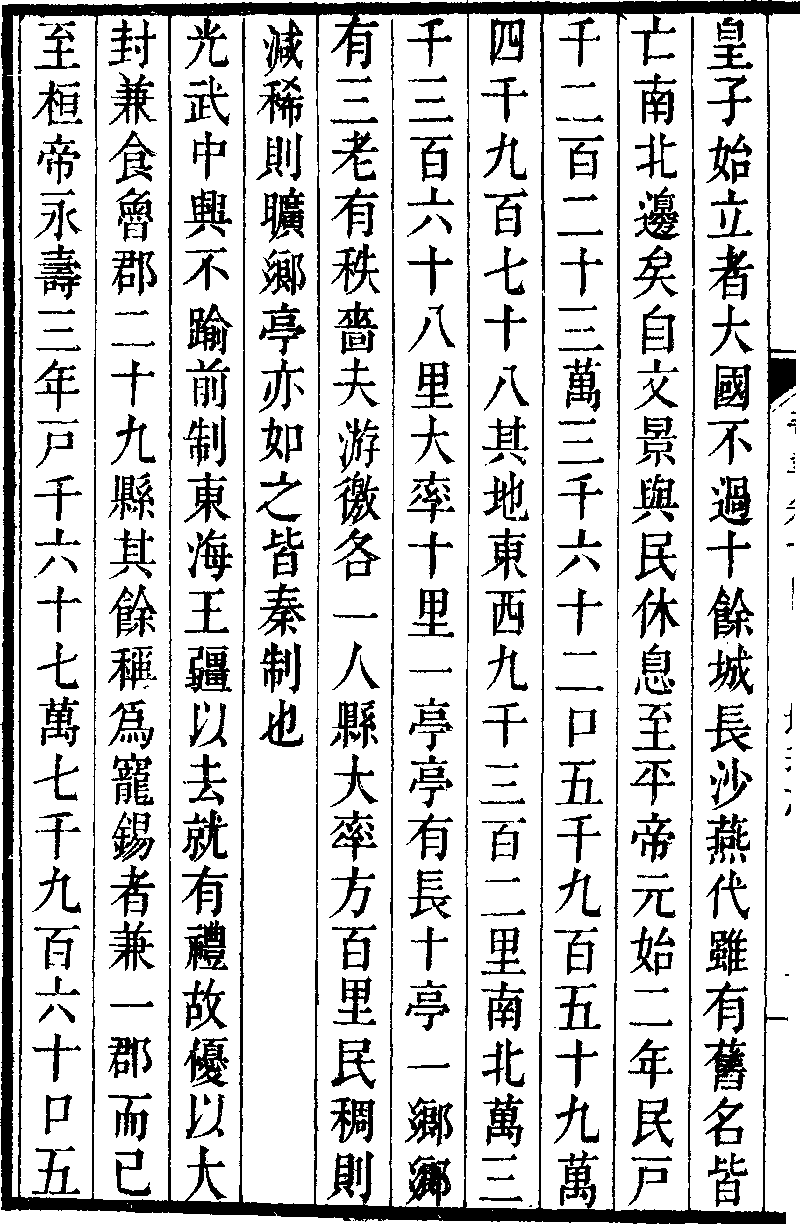 皇子始立者大國不過十餘城長沙燕代雖有舊名皆
亡南北邊矣自文景與民休息至平帝元始二年民戸
千二百二十三萬三千六十二口五千九百五十九萬
四千九百七十八其地東西九千三百二里南北萬三
千三百六十八里大率十里一亭亭有長十亭一鄉鄉
有三老有秩嗇夫游徼各一人縣大率方百里民稠則
減稀則曠鄉亭亦如之皆秦制也
光武中興不踰前制東海王疆以去就有禮故優以大
封兼食魯郡二十九縣其餘稱爲寵錫者兼一郡而已
至桓帝永壽三年戸千六十七萬七千九百六十口五